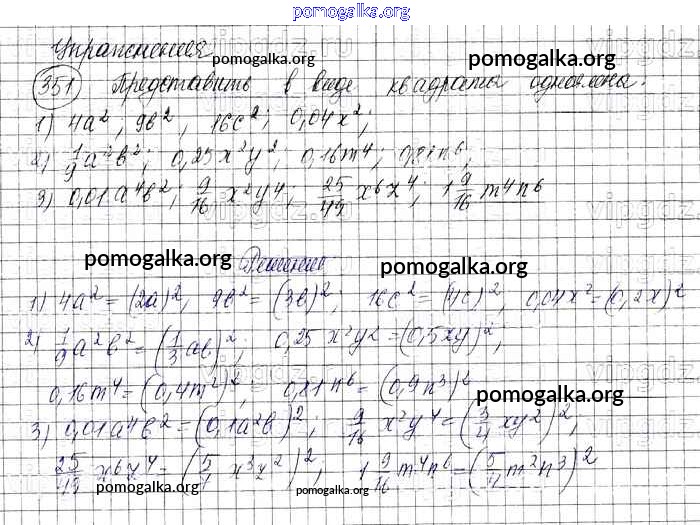 pomogalka.org
Упражнения
pomogalka.org
pomogalka.org
351 Представить в виде квадрата одночлена:
1) 4a², 9b², 16c²; 0,04x²;
2) 1/9 a²b²; 0,25x²y²; 0,16m⁴; 0,81n⁶;
3) 0,01a⁴b²; 9/16 x²y⁴; 25/49 x⁶z⁴; 1 9/16 m⁴n⁶
vipgdz
pomogalka.org Решение
pomogalka.org
1) 4a² = (2a)², 9b² = (3b)²; 16c² = (4c)², 0,04x² = (0,2x)²
2) 1/9 a²b² = (1/3 ab)²; 0,25x²y² = (0,5xy)²;
0,16m⁴ = (0,4m²)²; 0,81n⁶ = (0,9n³)²
pomogalka.org
3) 0,01a⁴b² = (0,1a²b)²; 9/16 x²y⁴ = (3/4 xy²)²,
25/49 x⁶z⁴ = (5/7 x³z²)²; 1 9/16 m⁴n⁶ = (5/4 m²n³)²
pomogalka.org
pomogalka.org